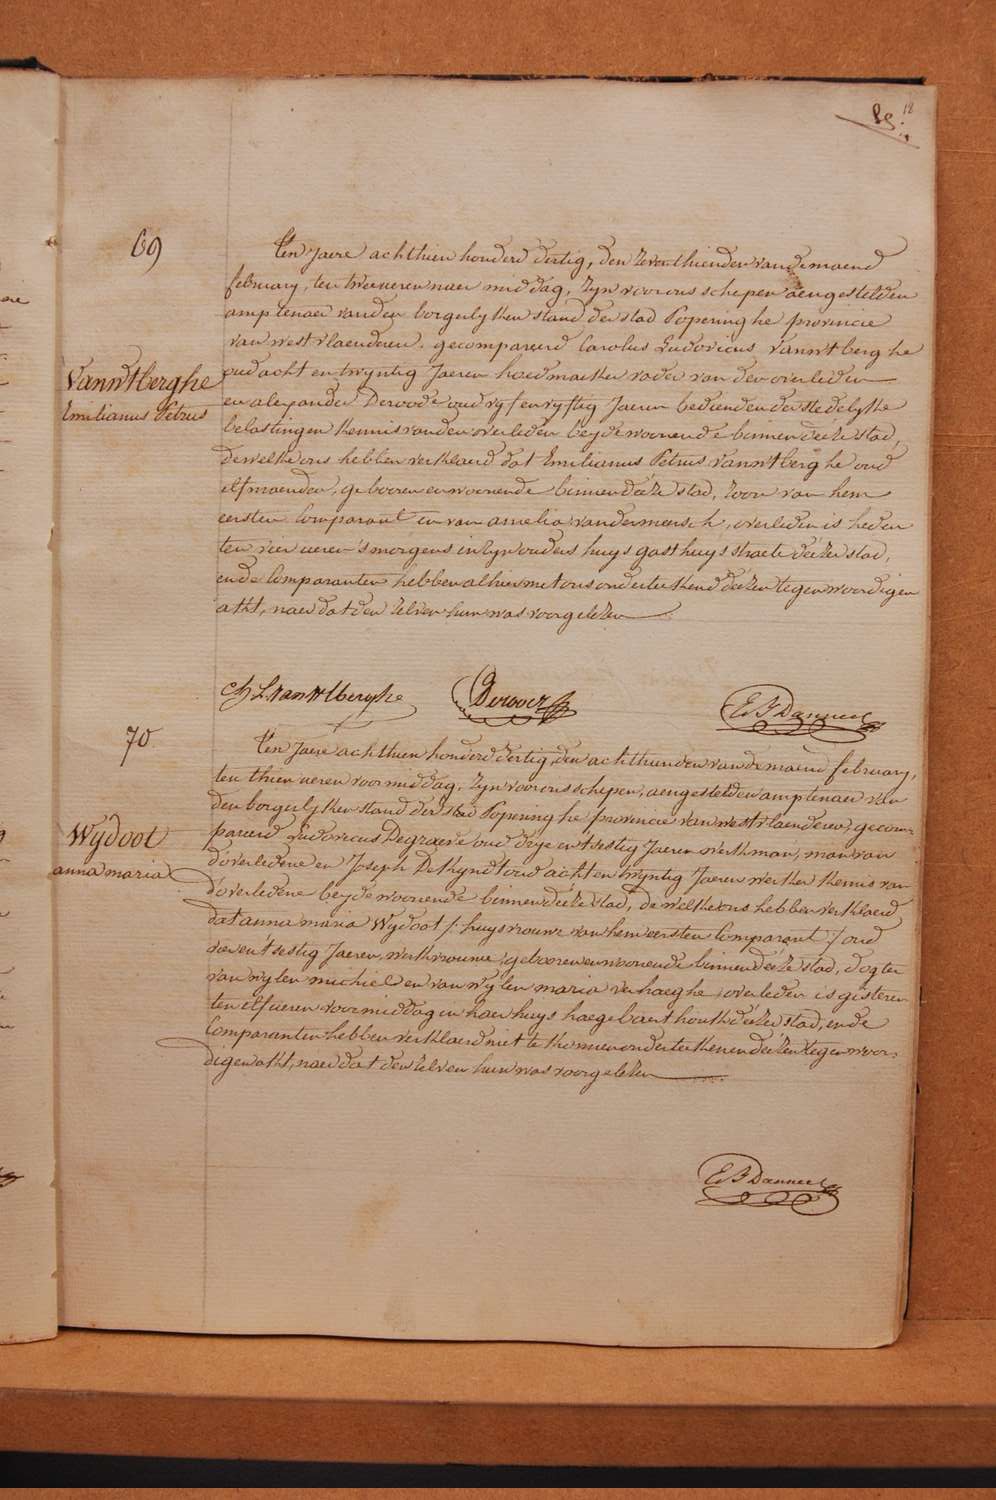 18
69
Ten Jaere achthien honderd dertig, den zeventhienden van de maend
february, ten twee ueren naer middag, zyn voor ons schepen aengestelden
amptenaer van den borgerlyken stand der stad Poperinghe provincie
van westvlaenderen, gecompareerd Carolus Ludovicus Vanwtberghe
oud acht en twyntig Jaeren hoedmaeker vader van den overleden
en alexander Dewode oud vyf en vyftig Jaeren bediende der stedelyke
belastingen kennis van den overleden beyde woonende binnen deéze stad,
dewelke ons hebben verklaerd dat Emilianus Petrus Vanwtberghe oud
elf maenden, gebooren en woonende binnen deéze stad, zoon van hem
eersten Comparant en van amelia vandermeersch, overleden is heden
ten vier ueren 's morgens in zyn ouders huys gasthuys straete deézer stad,
en de Comparanten hebben alhier met ons onderteekend deézen tegenwoordigen
akt, naer dat den zelven hun was voorgelezen
Vanwtberghe
Emilianus Petrus
Ch L. Vanwtberghe
E F Danneel
70
Ten Jaere achthien honderd dertig, den achthienden van de maend february,
ten thien ueren voormiddag, zyn voor ons schepen, aengestelden amptenaer van
den borgerlyken stand der stad Poperinghe provincie van westvlaenderen, gecom-
pareerd Ludovicus Degraeve oud drye en t'sestig Jaeren werkman, man van
d'overledene en Joseph Dekyndt oud acht en twyntig Jaeren werker kennis van
d'overledene beyde woonende binnen deéze stad, de welke ons hebben verklaerd
dat anna maria Wydoot /: huysvrouwe van hem eersten Comparant :/ oud
zeven t'sestig Jaeren, werkvrouwe, gebooren en woonende binnen deéze stad, dogter
van wylen michiel en van wylen maria verhaeghe, overleden is gisteren
ten elf ueren voormiddag in haer huys haegebaerthouk deézer stad, en de
Comparanten hebben verklaerd niet te konnen onderteekenen deézen tegenwoor-
digen akt, naer dat den zelven hun was voorgelezen
Wydoot
anna maria
E F Danneel